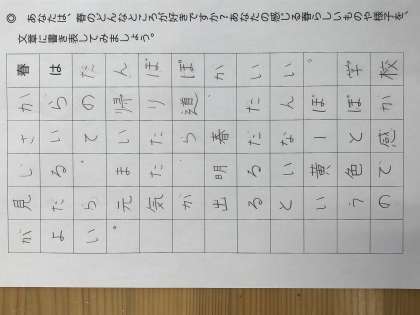 ◎ あなたは、春のどんなところが好きですか？あなたの感じる春らしいものや様子を、
文章に書き表してみましょう。
春はたんぽぽがいい。学校
からの帰り道、たんぽぽが
さいていたら春だなーと感
じる。また、明るい黄色で
見たら元気が出るというの
がよい。